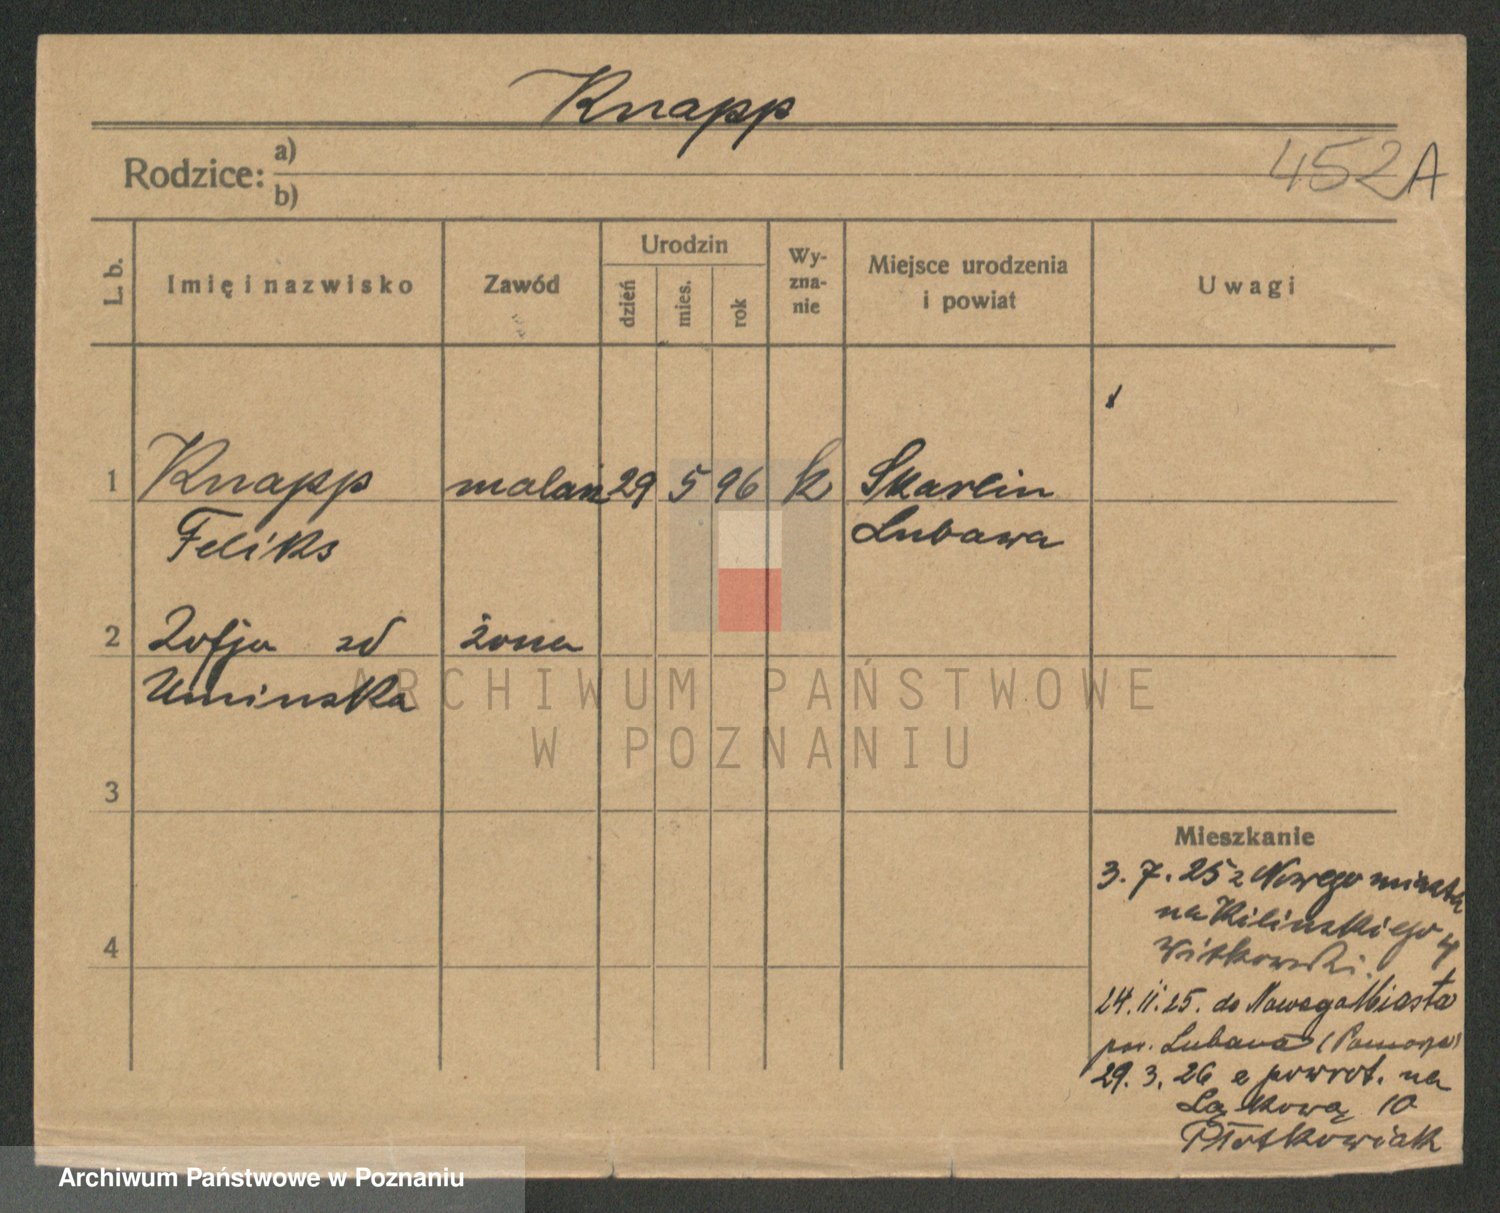 Knapp
452A
Rodzice: a)
b)
L. b.
Imię i nazwisko
Zawód
Urodzin
dzień
mies.
rok
Wy-
zna-
nie
Miejsce urodzenia
i powiat
Uwagi
1 Knapp 29 5 96 k Skarlin
Feliks Lubawa
2 Zofja zd żona
Uminska
ARCHIWUM PAŃSTWOWE
W POZNANIU
3
4
Mieszkanie
3. 7. 25 z Nowego miasta
na Kilinskiego
Witkowski.
24. 11. 25. do Nowego Miasta
pow. Lubawa (Pomorze)
29. 3. 26 z powrot. na
Łąkową 10
Płotkowiak
Archiwum Państwowe w Poznaniu